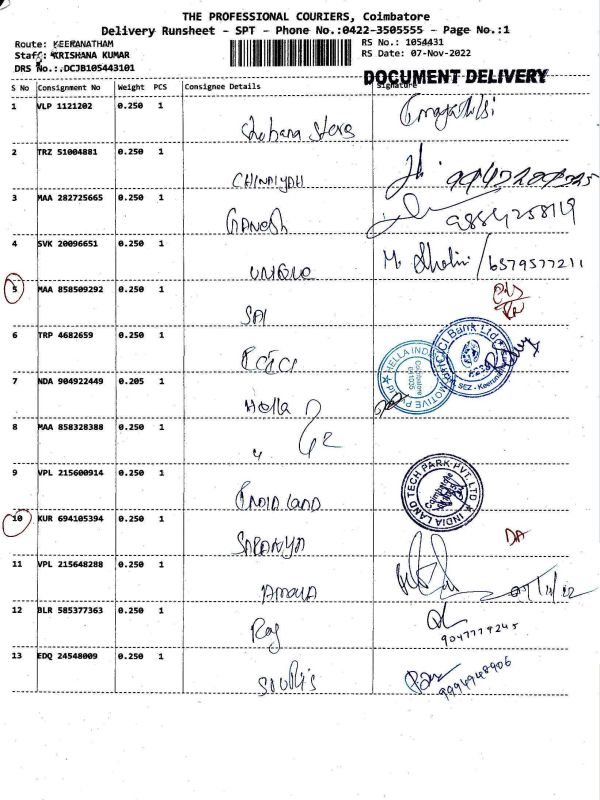 THE PROFESSIONAL COURIERS, Coimbatore
Delivery Runsheet - SPT - Phone No.:0422-3505555 - Page No.:1
Route: KEERANATHAM
RS No.: 1054431
Staff: KRISHANA KUMAR
RS Date: 07-Nov-2022
DRS No.:.DCJB105443101
DOCUMENT DELIVERY
S No Consignment No Weight PCS Consignee Details Signature
1 VLP 1121202 0.250 1
2 TRZ 51004881 0.250 1
CHINAIYAH
3 MAA 282725665 0.250 1
GANESH 9884258119
4 SVK 20096651 0.250 1
UNIQUE M. Shalini / 6579577211
5 MAA 858509292 0.250 1
SAI
6 TRP 4682659 0.250 1
ICICI
ICICI Bank Ltd
7 NDA 904922449 0.205 1
Hella
HELLA INDIA AUTOMOTIVE Pvt Ltd
Coimbatore
641035
8 MAA 858328388 0.250 1
"
9 VPL 215600914 0.250 1
INDIA LAND
INDIA LAND TECH PARK PVT. LTD
Coimbatore
10 KUR 694105394 0.250 1
SARANYA DA
11 VPL 215648288 0.250 1
07/11/22
12 BLR 585377363 0.250 1
Raj
9047779245
13 EDQ 24548009 0.250 1
9994948906